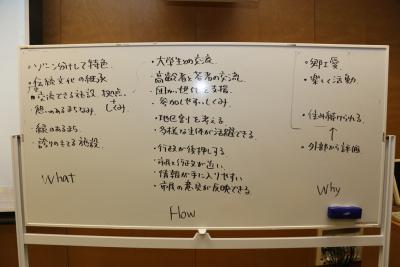 ・ゾーン分けして特色
・伝統文化の継承
・交流できる施設 拠点
+しくみ
・憩のあるまちなみ
・緑のあるまち
・誇りのもてる施設
What
・大学生との交流
・高齢者と若者の交流
・団体、世代を
・参加しやすいしくみ
・地区割を考える
・多様な主体が活躍できる
・行政が後押しする
・市民と行政が近い
・情報が手に入りやすい
・市民の意見が反映できる
How
・郷土愛
・楽しく活動
・住み続けられる
↑
・外部から評価
Why